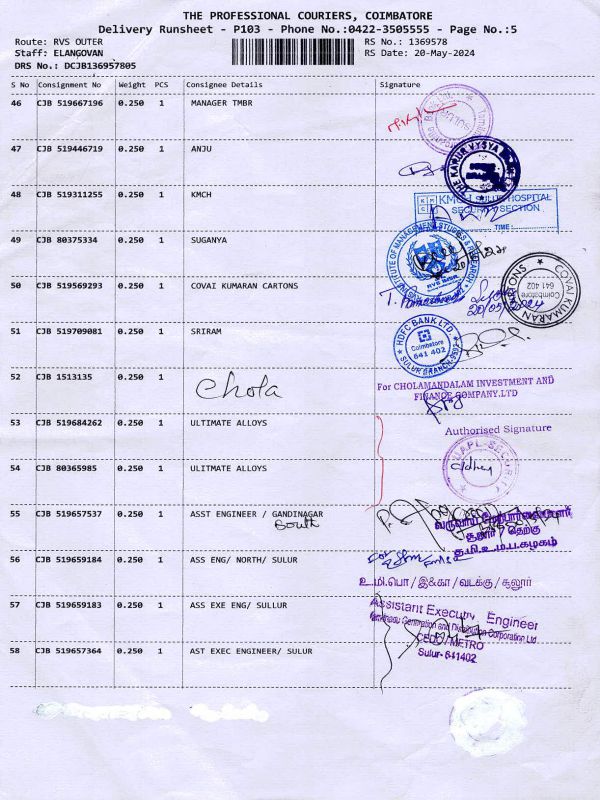 THE PROFESSIONAL COURIERS, COIMBATORE
Delivery Runsheet - P103 - Phone No.:0422-3505555 - Page No.:5
Route: RVS OUTER
RS No.: 1369578
Staff: ELANGOVAN
RS Date: 20-May-2024
DRS No.: DCJB136957805
S No Consignment No Weight PCS Consignee Details Signature
46 CJB 519667196 0.250 1 MANAGER TMBR
47 CJB 519446719 0.250 1 ANJU
THE KARUR VYSYA
48 CJB 519311255 0.250 1 KMCH
KMCH SULUR HOSPITAL
SECURITY SECTION
TIME:
49 CJB 80375334 0.250 1 SUGANYA
INSTITUTE OF MANAGEMENT STUDIES & RESEARCH
50 CJB 519569293 0.250 1 COVAI KUMARAN CARTONS
COVAI KUMARAN CARTONS
Coimbatore
641 402
20/05/2024
51 CJB 519709081 0.250 1 SRIRAM
HDFC BANK LTD.
Coimbatore
641 402
SULUR BRANCH
52 CJB 1513135 0.250 1 chola
For CHOLAMANDALAM INVESTMENT AND
FINANCE COMPANY.LTD
53 CJB 519684262 0.250 1 ULTIMATE ALLOYS
Authorised Signature
54 CJB 80365985 0.250 1 ULITMATE ALLOYS
UAPL-SECURITY
55 CJB 519657537 0.250 1 ASST ENGINEER / GANDINAGAR
South
சூலூர் / தெற்கு
த.மி.உ.ம.ப.கழகம்
56 CJB 519659184 0.250 1 ASS ENG/ NORTH/ SULUR
உ.மி.பொ / இ&கா / வடக்கு / சூலூர்
57 CJB 519659183 0.250 1 ASS EXE ENG/ SULLUR
Assistant Executive Engineer
Tamilnadu Generation and Distribution Corporation Ltd
CEDC/METRO
Sulur-641402
58 CJB 519657364 0.250 1 AST EXEC ENGINEER/ SULUR